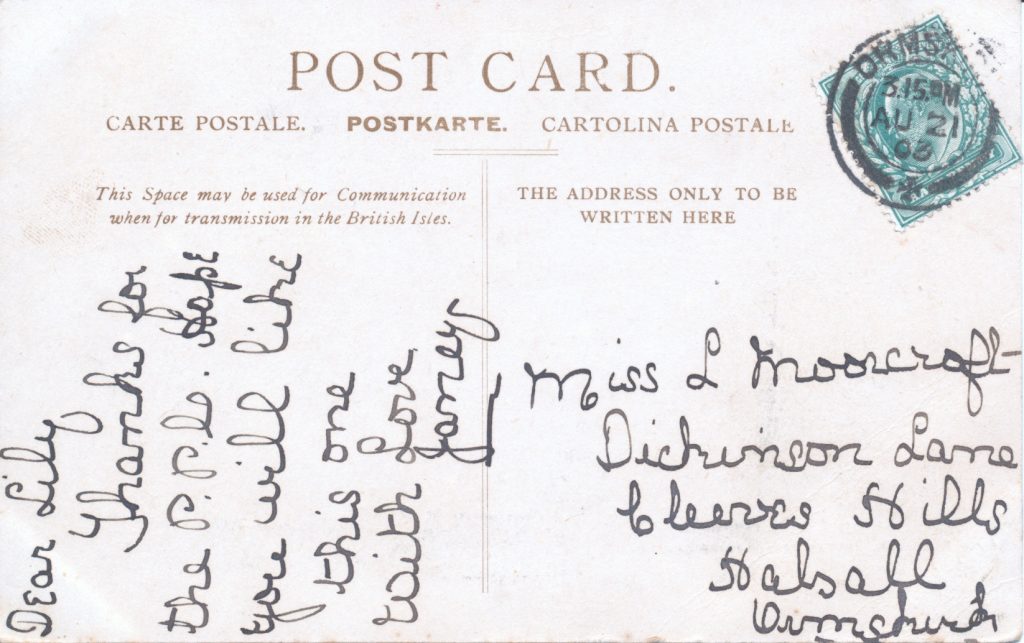 POST CARD.
CARTE POSTALE. POSTKARTE. CARTOLINA POSTALE
This Space may be used for Communication
when for transmission in the British Isles.
THE ADDRESS ONLY TO BE
WRITTEN HERE
3.15PM
AU 21
Dear Lily
Thanks for
the P.P.C. Hope
you will like
this one
With love
Janey
Miss L Moorcroft
Dickinson Lane
Cleeves Hills
Halsall
Ormskirk